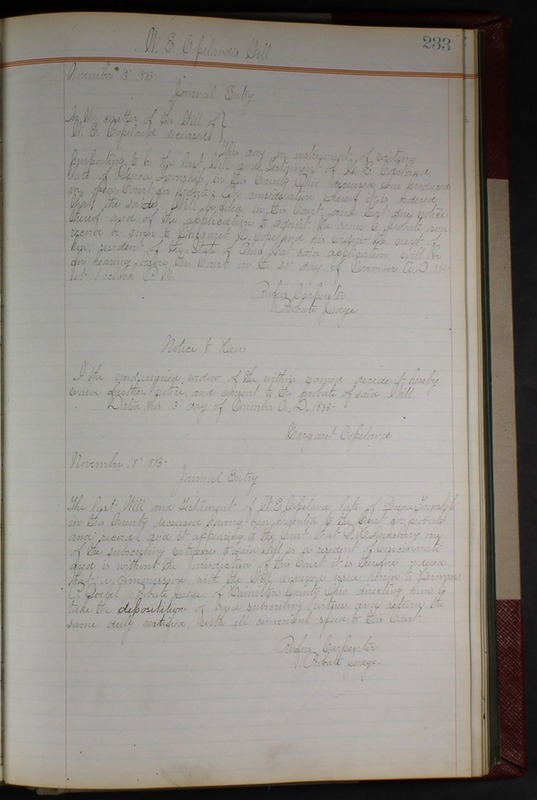 233
W. E. Copeland's Will
November 15" 1895
Journal Entry
In the matter of the Will of
W. E. Copeland deceased
This day an instrument of writing
purporting to be the last will and testament of W. E. Copeland
late of Township, in this County Ohio deceased was produced
in open Court for probate. On consideration whereof it is ordered
that the said Will be filed in this Court and that due notice
thereof and of the application to admit the same to probate and
record be given to Margaret Copeland his widow & next of
kin, resident of the State of Ohio that said application will be
for hearing before this Court on the day of November A.D. 1895
at o'clock P. M.
Rufus Carpenter
Probate Judge
Notice to Heirs
I the undersigned widow of the within named decedent hereby
waive further notice and consent to the probate of said Will
Dated this 15 day of November A. D. 1895-
Margaret Copeland
November 15" 1895-
Journal Entry
The last Will and Testament of W. E. Copeland late of Township
in this County deceased having been presented to this Court for probate
and record, and it appearing to the Court that one
of the subscribing witnesses to said Will is a resident of Cincinnati
and is without the jurisdiction of this Court it is therefore ordered
that a commission with the Will annexed issue herein to Herman
P. Goebel Probate Judge of Hamilton County Ohio directing him to
take the deposition of said subscribing witness and return the
same duly certified with all convenient speed to this Court.
Rufus Carpenter
Probate Judge.